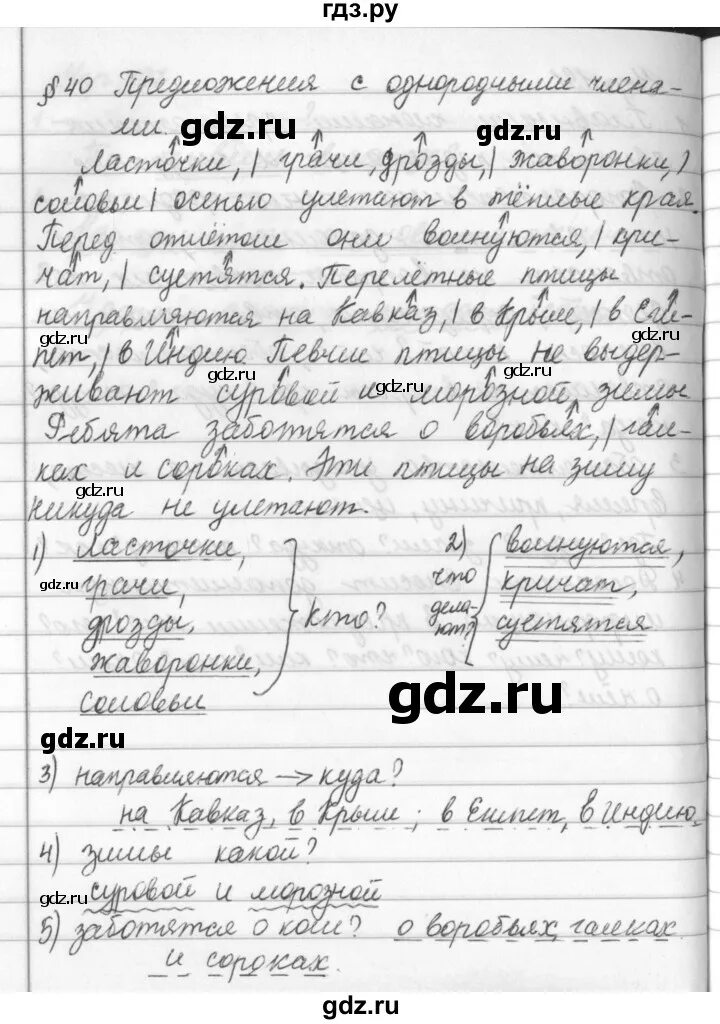 гдз.ру
§ 40 Предложения с однородными члена-
ми.
gdz.ru
gdz.ru
Ласточки, | грачи, дрозды, | жаворонки, |
соловьи | осенью улетают в тёплые края.
Перед отлётом они волнуются, | кри-
чат, | суетятся. Перелётные птицы
направляются на Кавказ, | в Крым, | в Еги-
gdz.ru
gdz.ru
пет, | в Индию. Певчие птицы не выдер-
gdz.ru
gdz.ru
живают суровой и морозной зимы
Ребята заботятся о воробьях, | гал-
ках и сороках. Эти птицы на зиму
gdz.ru
никуда не улетают.
1) ласточки,
грачи,
дрозды,
жаворонки,
соловьи
кто?
2) что дела-
ют?
волнуются,
кричат,
суетятся
gdz.ru
gdz.ru
gdz.ru
gdz.ru
3) направляются → куда?
на Кавказ, в Крым; в Египет, в Индию.
gdz.ru
4) зимы какой?
gdz.ru
gdz.ru
суровой и морозной
5) заботятся о ком? о воробьях, галках
gdz.ru
и сороках.
gdz.ru